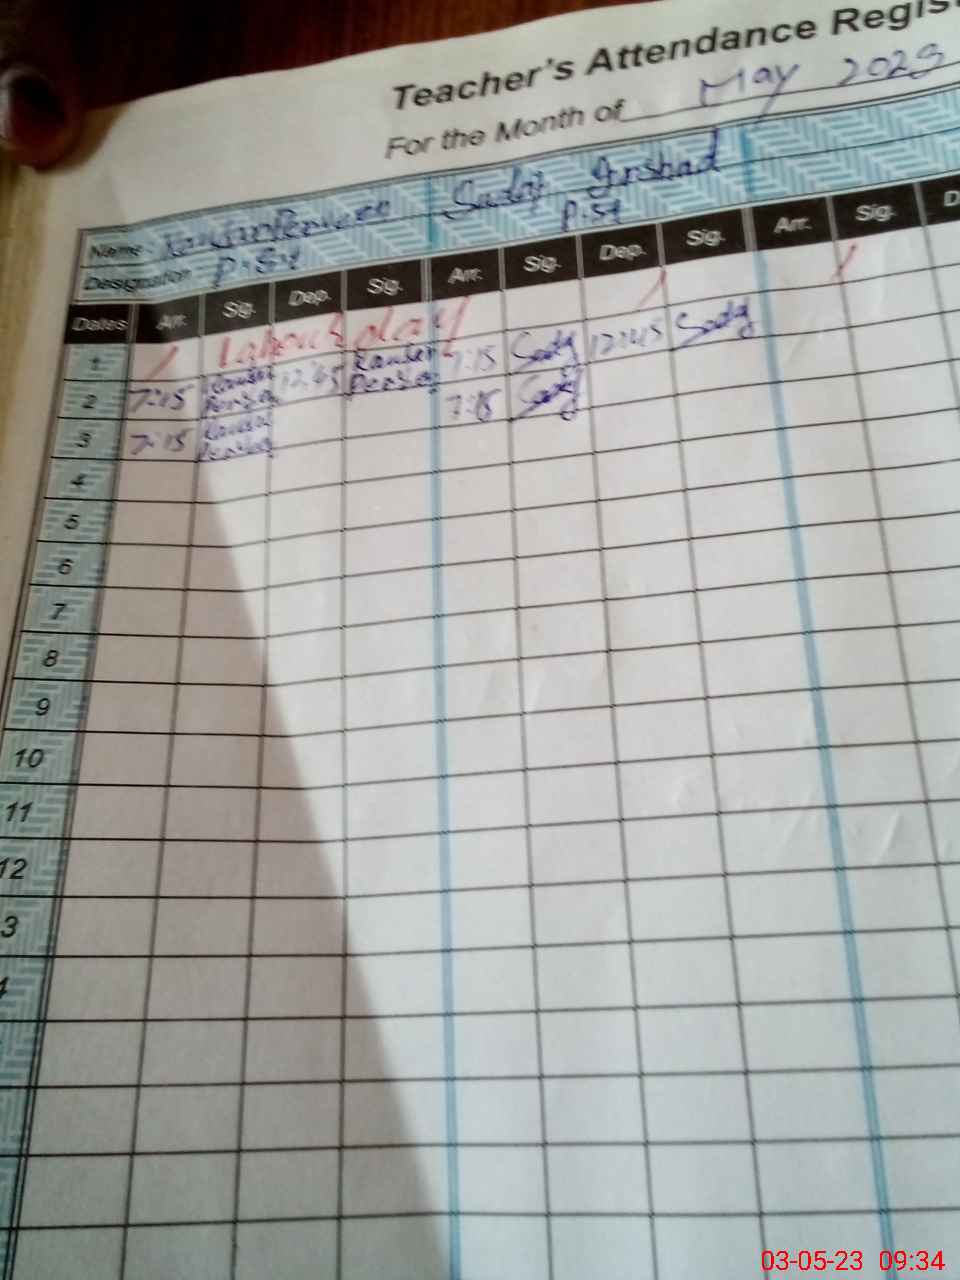 Teacher's Attendance Regis
For the Month of May 2023
Name Sadaf Irshad
Designation P.S.t P.St
Dates Arr. Sig. Dep. Sig. Arr. Sig. Dep. Sig. Arr. Sig. D
1 Labour day
2 7:15 Kausar 12:45 Kausar 7:15 Sadaf 12:45 Sadaf
3 7:15 Kausar 7:15 Sadaf
4
5
6
7
8
9
10
11
12
3
4
03-05-23 09:34